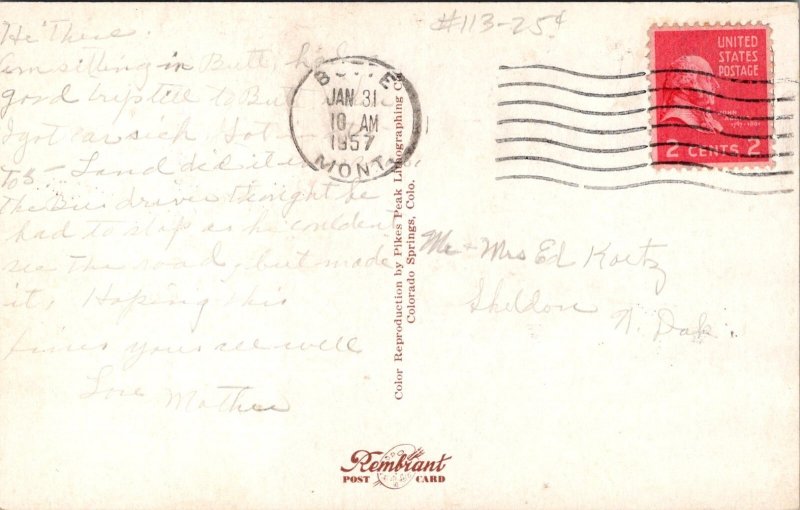 #113-25¢
Hi There.
Am sitting in Butt, had a
good trip till to But
I got car sick Got
to 5 - L and did it
the Bus driver thought he
had to stop as he couldent
see the road, but made
it, Hoping this
finds you all well
Love Mother
BUTTE
JAN 31
10 AM
1957
MONT.
UNITED
STATES
POSTAGE
JOHN
ADAMS
2 CENTS 2
Color Reproduction by Pikes Peak Lithographing Co.
Colorado Springs, Colo.
Mr + Mrs Ed Kortz
Sheldon
N. Dak.
Rembrant
POST CARD